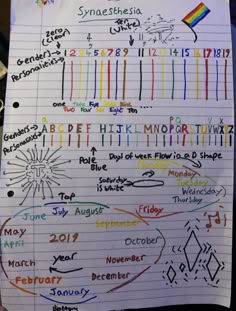 Synaesthesia
zero (clear) zero (white)
Genders→ 1 2 3 4 5 6 7 8 9 11 12 14 15 17 18 19
Personalities→
one Two Five
Two Four Six Eight Ten
Genders→ A B C D E F H I J K L M N O P Q R T U V W X Z
Personalities→
Pale Blue
Days of week Flow in a D Shape
Monday
Saturday is White
Tuesday
Wednesday
Thursday
Friday
Top
June July August
September
May 2019 October
April
March year November
February December
January
Bottom